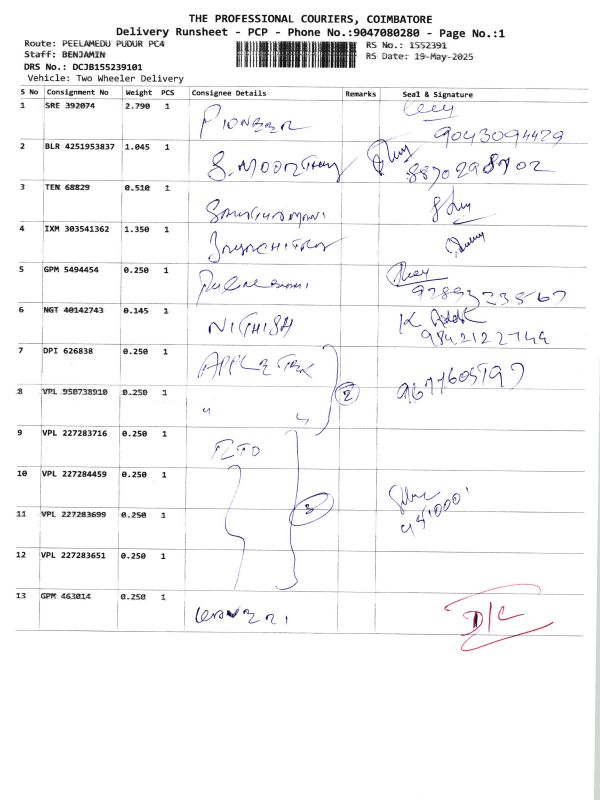 THE PROFESSIONAL COURIERS, COIMBATORE
Delivery Runsheet - PCP - Phone No.:9047080280 - Page No.:1
Route: PEELAMEDU PUDUR PC4
RS No.: 1552391
Staff: BENJAMIN
RS Date: 19-May-2025
DRS No.: DCJB155239101
Vehicle: Two Wheeler Delivery
S No Consignment No Weight PCS Consignee Details Remarks Seal & Signature
1 SRE 392074 2.790 1 PIONEER 9043094429
2 BLR 4251953837 1.045 1 S. MOORTHY
3 TEN 68829 0.510 1
4 IXM 303541362 1.350 1
5 GPM 5494454 0.250 1
6 NGT 40142743 0.145 1 NITHISH
7 DPI 626838 0.250 1 9677605197
8 VPL 950738910 0.250 1 " " 2
9 VPL 227283716 0.250 1
10 VPL 227284459 0.250 1
11 VPL 227283699 0.250 1 3
12 VPL 227283651 0.250 1
13 GPM 463014 0.250 1 D/C